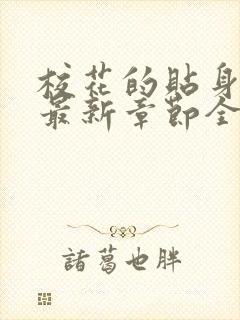 校花的贴身
最新章节全
諸葛也胖